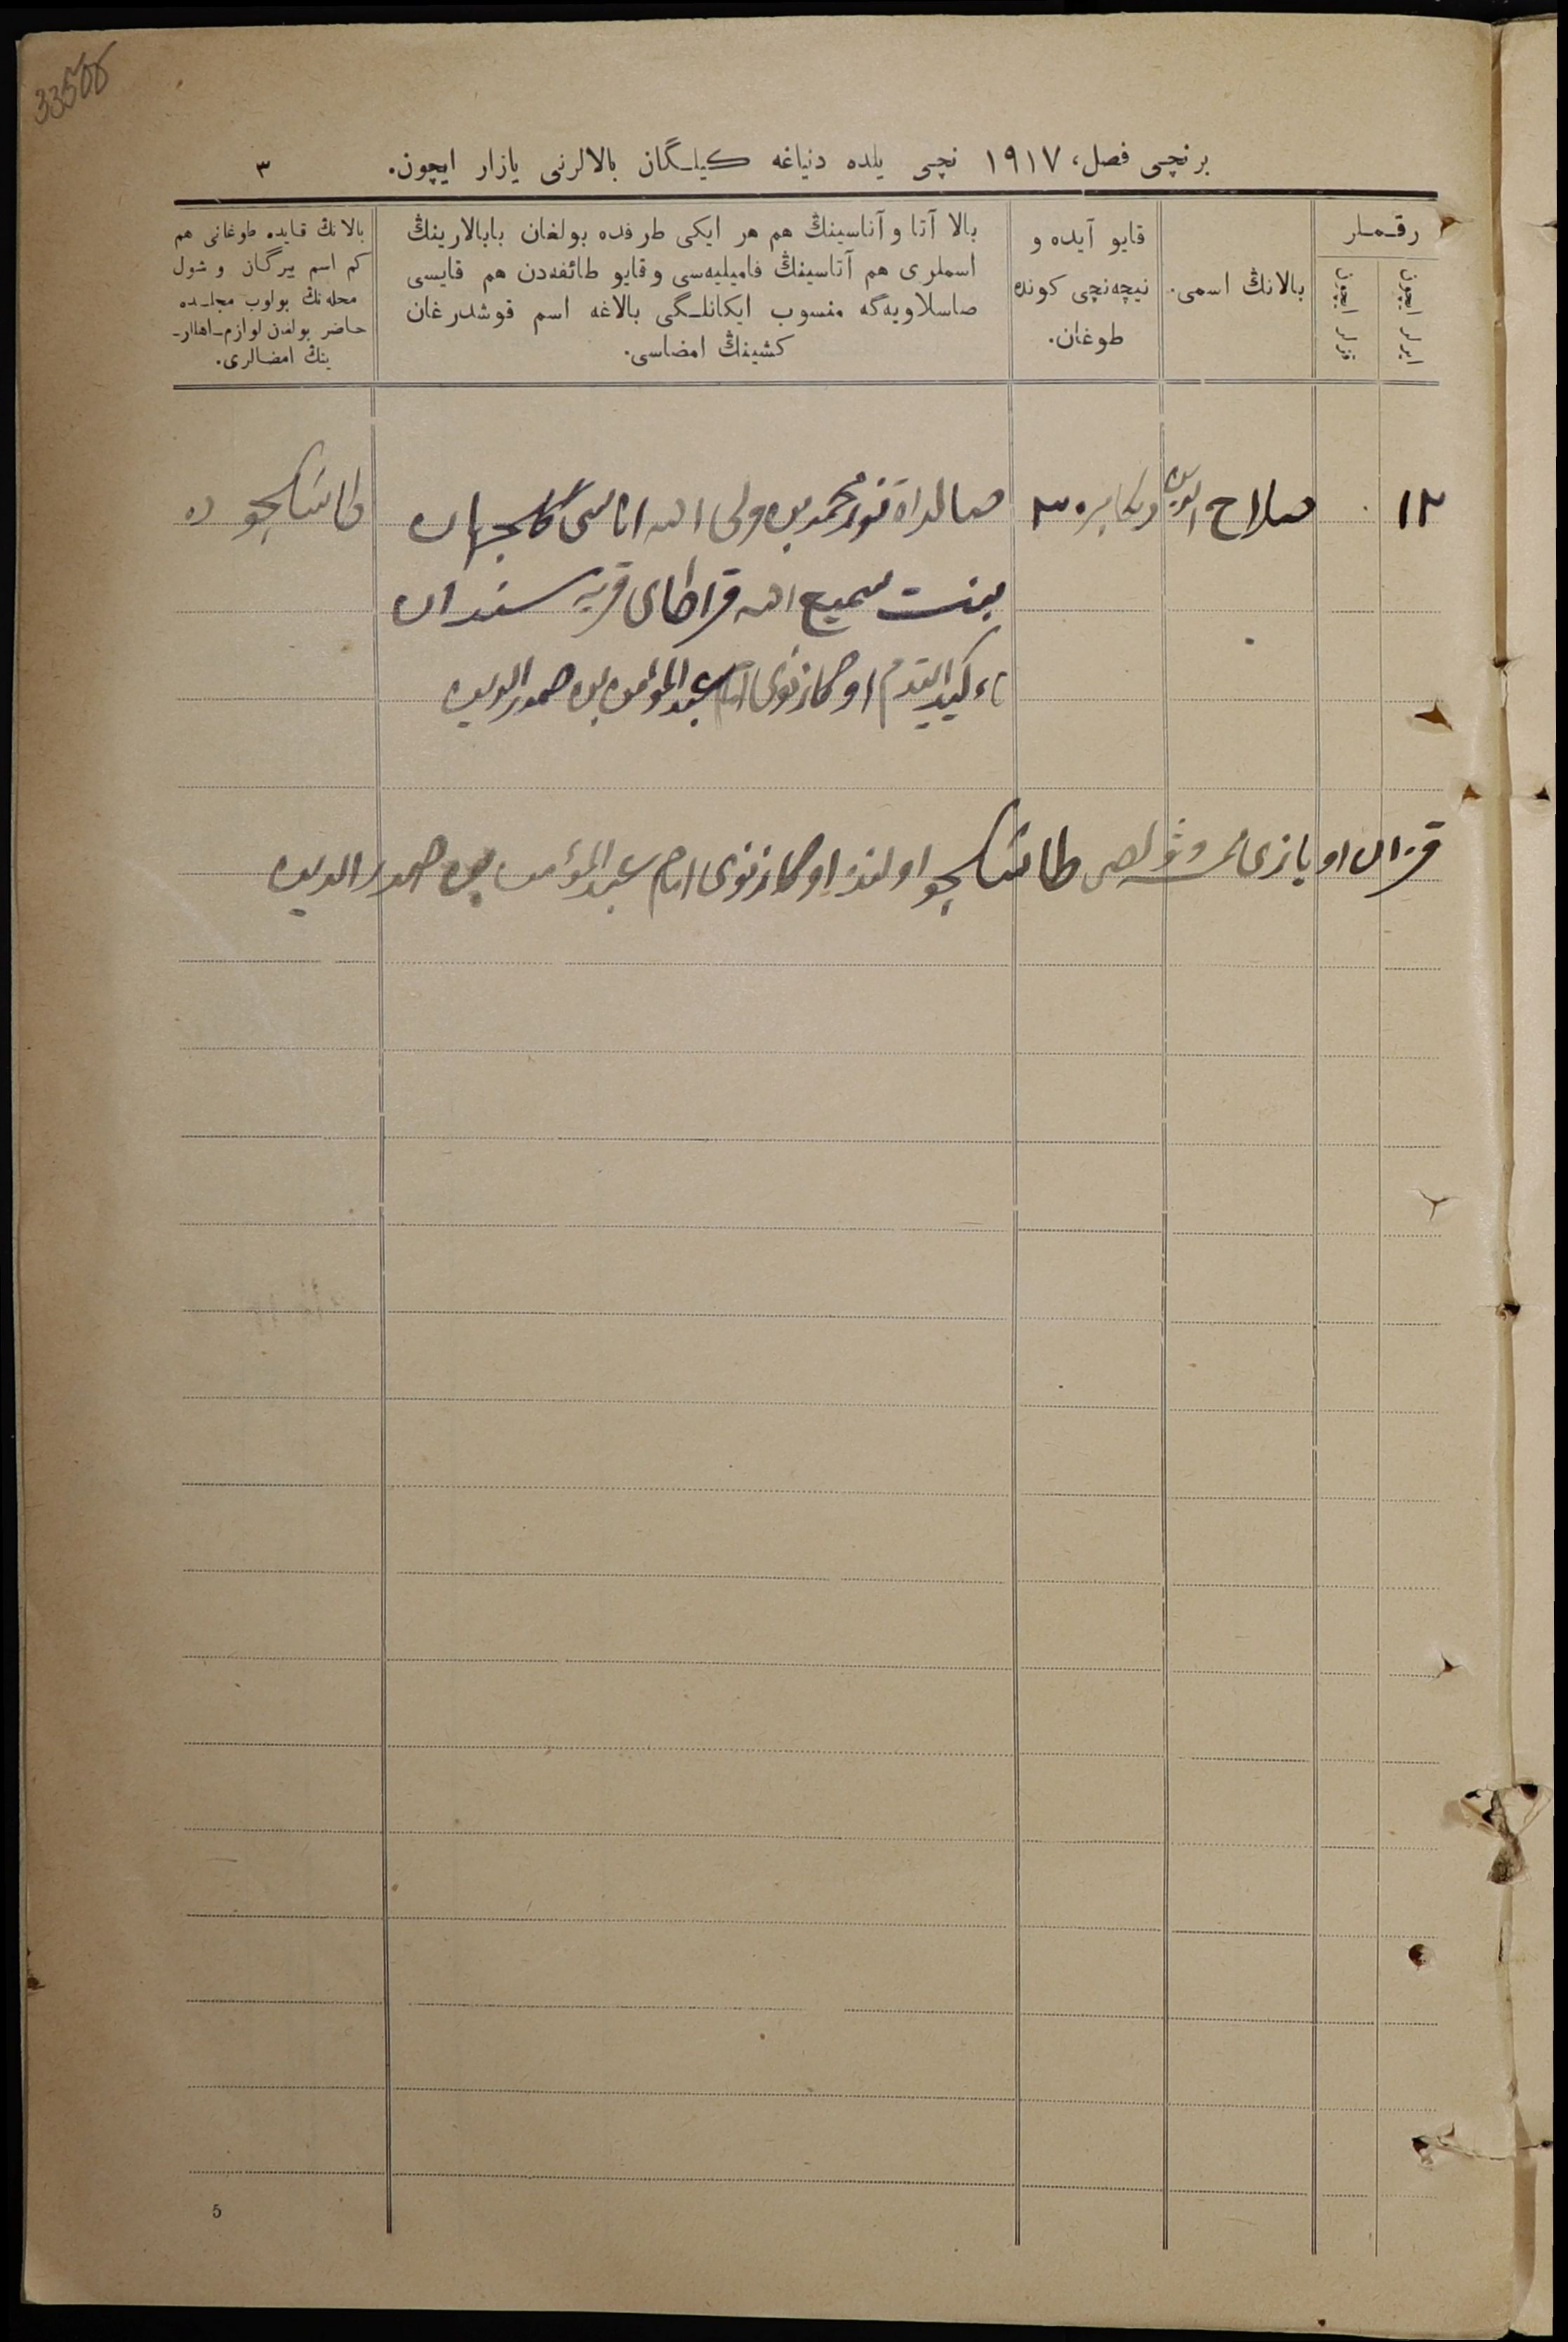 33500
برنچی فصل، ١٩١٧ نچی یلده دنیاغه كیلـگان بالالرنی یازار ایچون.
٣
رقـمـلر
ایرلر ایچون
قزلر ایچون
بالانڭ اسمی.
قایو آیده و
نیچه‌نچی كونده
طوغان.
بالا آتا و آناسینڭ هم هر ایكی طرفده بولغان بابالارینڭ
اسملری هم آتاسینڭ فامیلیه‌سی و قایو طائفه‌دن هم قایسی
صاسلاویه‌گه منسوب ایكانلـگی بالاغه اسم قوشدرغان
كشینڭ امضاسی.
بالانڭ قایده طوغانی هم
كم اسم بیرگان و شول
محله‌نڭ بولوب مجلـده
حاضر بولغان لوازم-اهللر-
ینڭ امضالری.
١٢ صلاح الدین دیكابر ٣٠ صالداة نورمحمد بن ولی الله اناسی گلجهان طاشكچو ده
بنت سمیع الله قراطای قریه سندان
اوكازنوی امام عبدالمؤمن بن صدرالدین
قزان اویازی طاشكچو اولنده اوكازنوی امام عبدالمؤمن بن صدرالدین
5